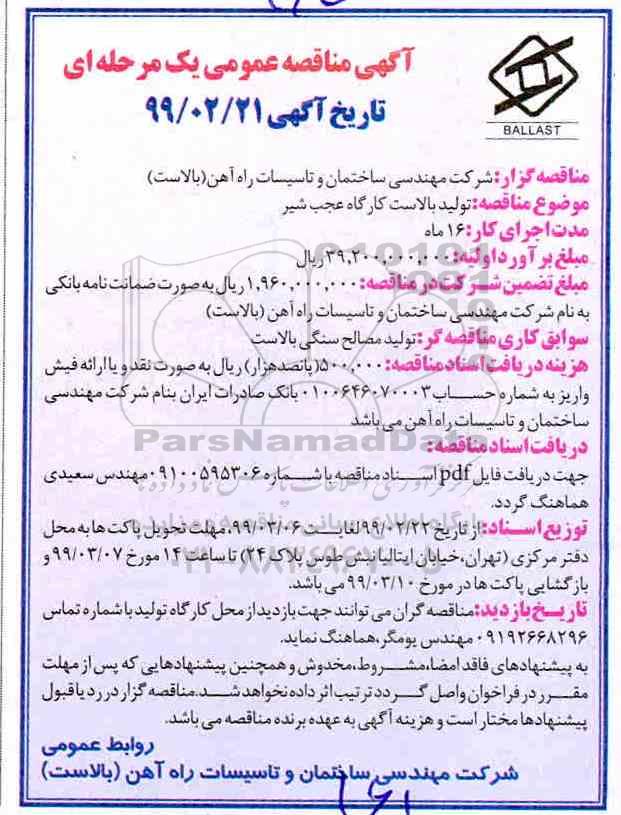 آگهی مناقصه عمومی یک مرحله ای
تاریخ آگهی ۹۹/۰۲/۲۱
BALLAST
مناقصه گزار: شرکت مهندسی ساختمان و تاسیسات راه آهن (بالاست)
موضوع مناقصه: تولید بالاست کارگاه عجب شیر
مدت اجرای کار: ۱۶ ماه
مبلغ برآورد اولیه: ۳۹,۲۰۰,۰۰۰,۰۰۰ ریال
مبلغ تضمین شرکت در مناقصه: ۱,۹۶۰,۰۰۰,۰۰۰ ریال به صورت ضمانت نامه بانکی
به نام شرکت مهندسی ساختمان و تاسیسات راه آهن (بالاست)
سوابق کاری مناقصه گر: تولید مصالح سنگی بالاست
هزینه دریافت اسناد مناقصه: ۵۰۰,۰۰۰ (پانصد هزار) ریال به صورت نقد و یا ارائه فیش
واریز به شماره حساب ۰۱۰۰۶۴۶۰۷۰۰۰۳ بانک صادرات ایران بنام شرکت مهندسی
ساختمان و تاسیسات راه آهن می باشد
ParsNamadData
دریافت اسناد مناقصه:
جهت دریافت فایل pdf اسناد مناقصه با شماره ۰۹۱۰۰۵۹۵۳۰۶ مهندس سعیدی
هماهنگ گردد.
توزیع اسناد: از تاریخ ۹۹/۰۲/۲۲ لغایت ۹۹/۰۳/۰۶، مهلت تحویل پاکت ها به محل
دفتر مرکزی (تهران، خیابان ایتالیا نبش طوس پلاک ۲۴) تا ساعت ۱۴ مورخ ۹۹/۰۳/۰۷ و
بازگشایی پاکت ها در مورخ ۹۹/۰۳/۱۰ می باشد.
تاریخ بازدید: مناقصه گران می توانند جهت بازدید از محل کارگاه تولید با شماره تماس
۰۹۱۹۲۶۶۸۲۹۶ مهندس یومگر، هماهنگ نماید.
به پیشنهادهای فاقد امضا، مشروط، مخدوش و همچنین پیشنهادهایی که پس از مهلت
مقرر در فراخوان واصل گردد ترتیب اثر داده نخواهد شد. مناقصه گزار در رد یا قبول
پیشنهادها مختار است و هزینه آگهی به عهده برنده مناقصه می باشد.
روابط عمومی
شرکت مهندسی ساختمان و تاسیسات راه آهن (بالاست)